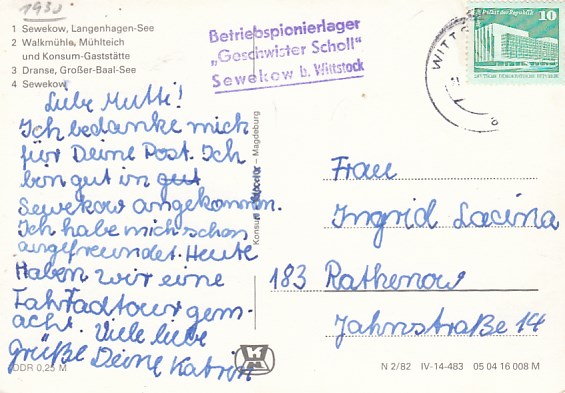 1930
1 Sewekow, Langenhagen-See
2 Walkmühle, Mühlteich
und Konsum-Gaststätte
3 Dranse, Großer-Baal-See
4 Sewekow
Betriebspionierlager
„Geschwister Scholl“
Sewekow b. Wittstock
WITTS
a
10
Palast der Republik
DEUTSCHE DEMOKRATISCHE REPUBLIK
Liebe Mutti!
Ich bedanke mich
für Deine Post. Ich
bin gut in gut
Sewekow angekommen.
Ich habe mich schon
angefreundet. Heute
Haben wir eine
Fahrradtour gem-
acht. Viele liebe
Grüße Deine Katrin
Magdeburg
Frau
Ingrid Lacina
183 Rathenow
Jahnstraße 14
DDR 0,25 M
N 2/82 IV-14-483 05 04 16 008 M